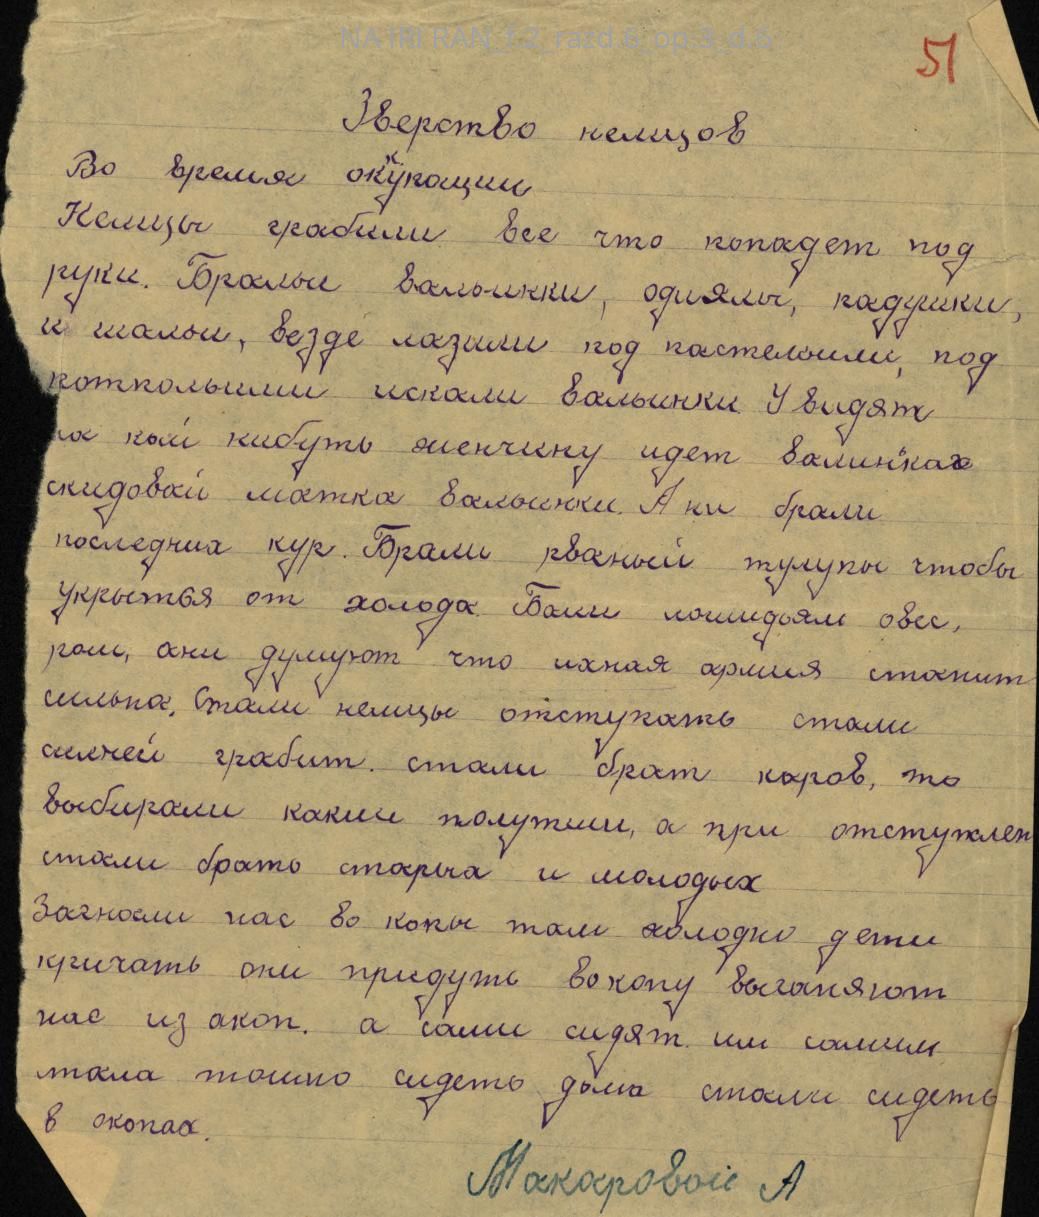 NA IRI RAN_f.2_razd.6_op.3_d.5
51
Зверство немцов
Во время оккупации
Немцы грабили все что попадет под
руки. Бралыи вальинки, одиялы, падушки,
и шалыи, везде лазили под пастельыми, под
потпольыми искали вальинки Увидят
на кой нибуть женчину идет валинках
скидовай матка вальинки. Ани брали
последних кур. Брали рваный тулупы чтобы
укрытья от холода. Бали лошидьям овес,
ани думуют что ихная армия станит
сильна. Стали немцы отступать стали
силней грабит. стали брат каров, то
выбирали какии полутши, а при отступлен
стали брать старых и молодых
Загнали нас во копы там холодно дети
кричать они придуть вокопу выганяют
нас из акоп. а сами сидят. им самим
стала тошно сидеть дома стали сидеть
в окопах.
Макаровой А